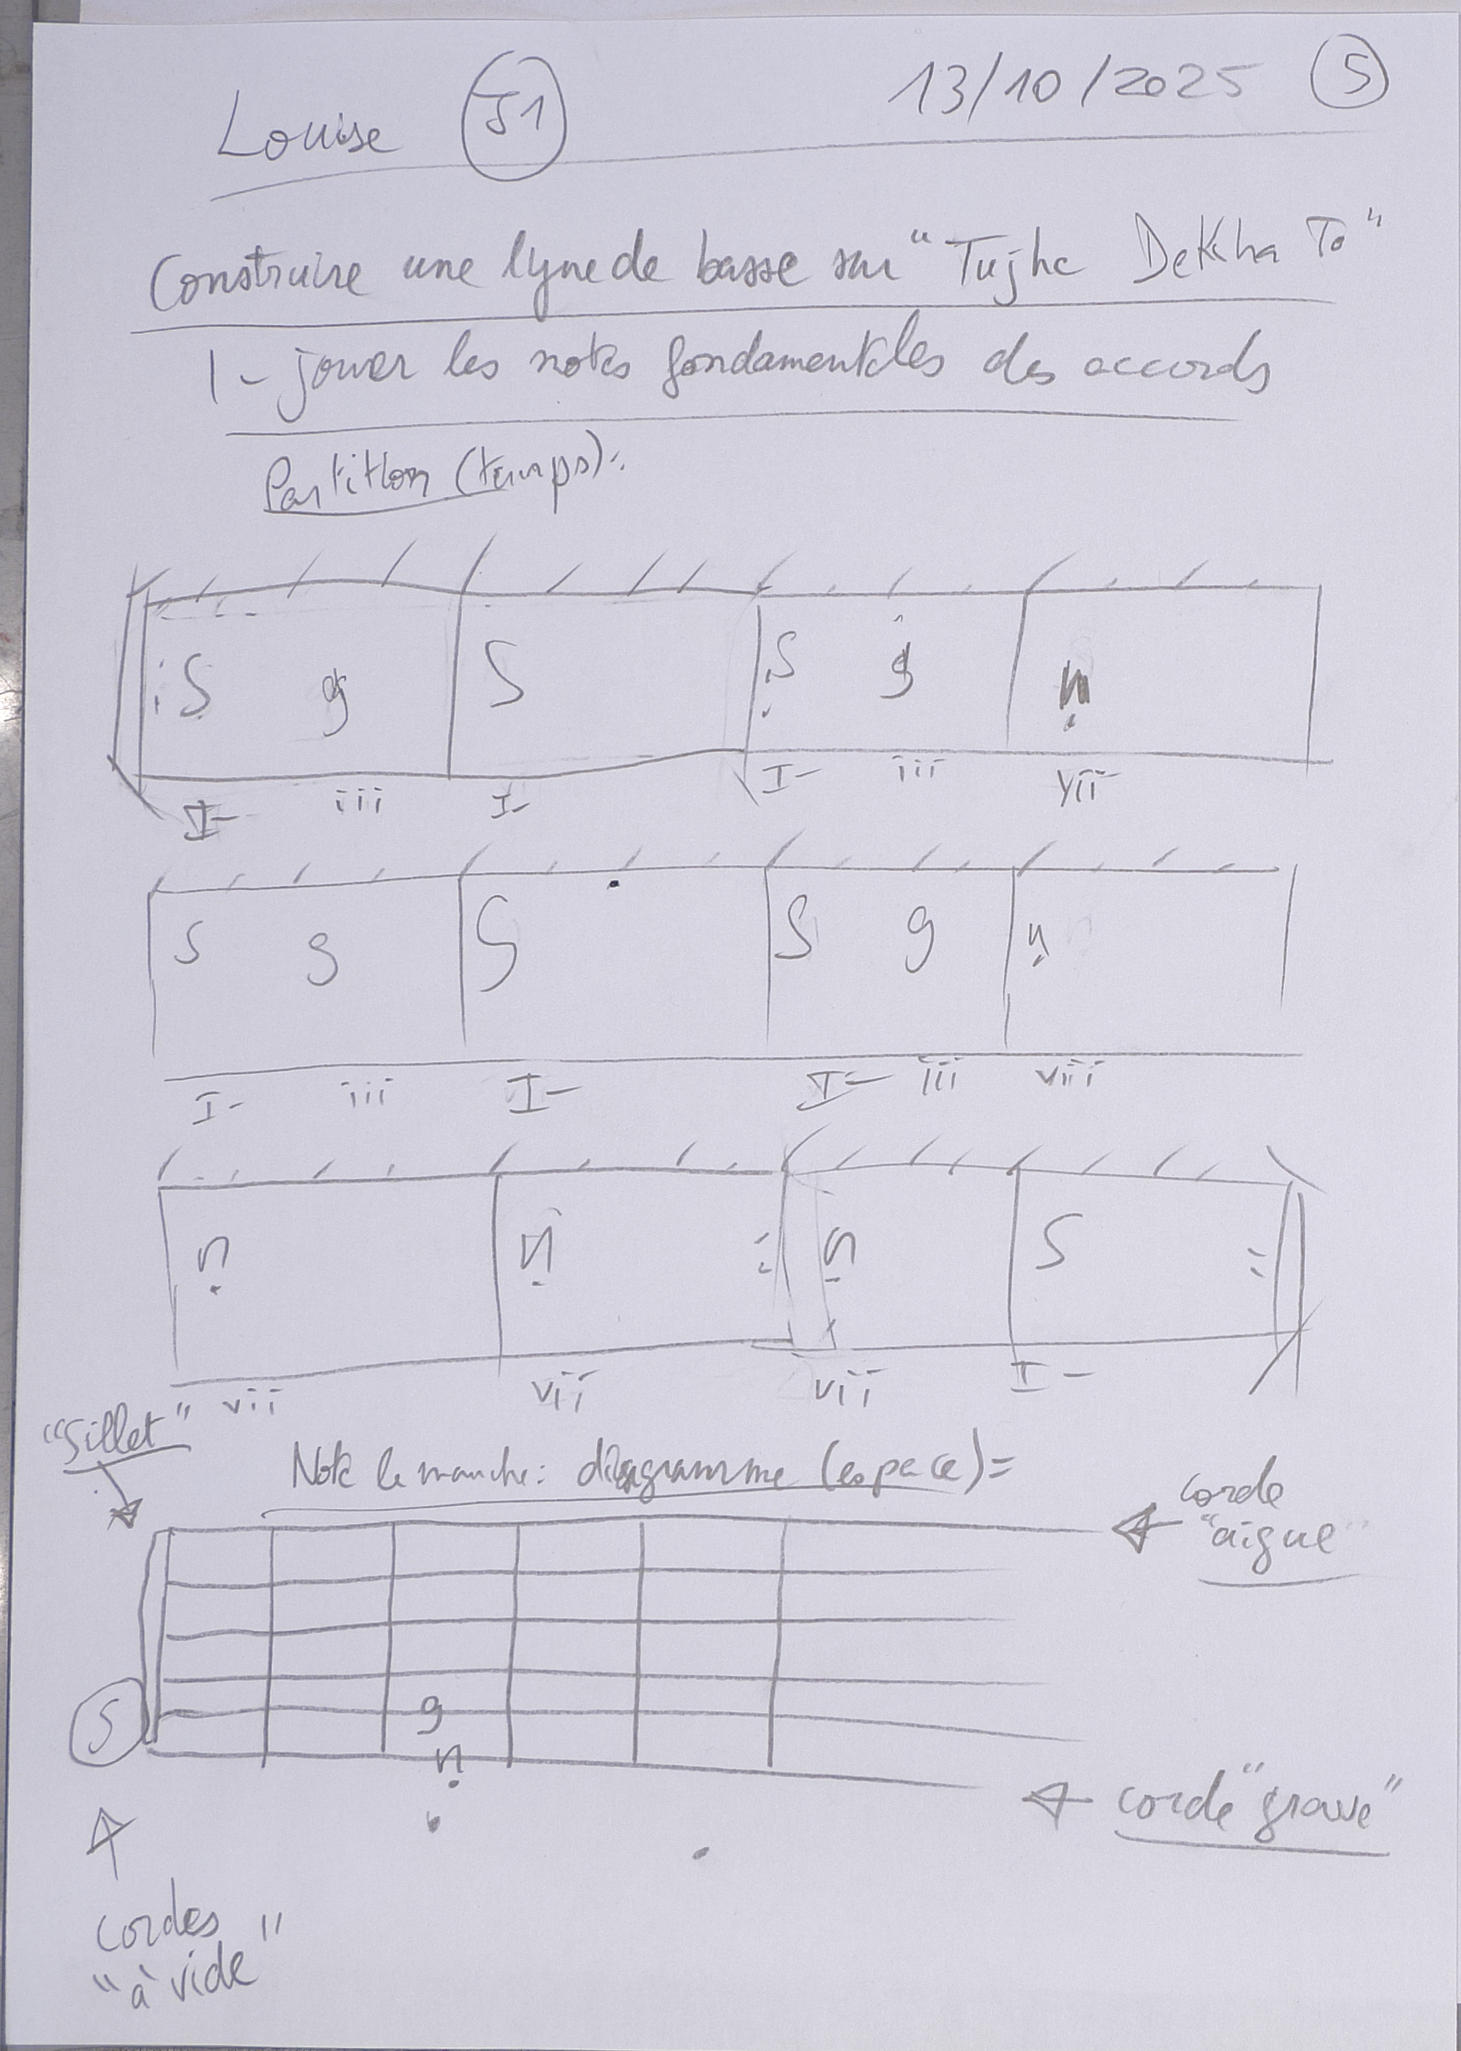 Louise 51 13/10/2025 5
Construire une lyne de basse sur "Tujhe Dekha To"
1- jouer les notes fondamentales des accords
Partition (temps):
S g S S g ṇ
I- iii I- I- iii vii
S g S S g ṇ
I- iii I- I- iii vii
ṇ ṇ ṇ S
vii vii vii I-
"Sillet"
Note le manche: diagramme (espace)=
corde
"aigue"
S
g
ṇ
corde "grave"
cordes
"à vide"